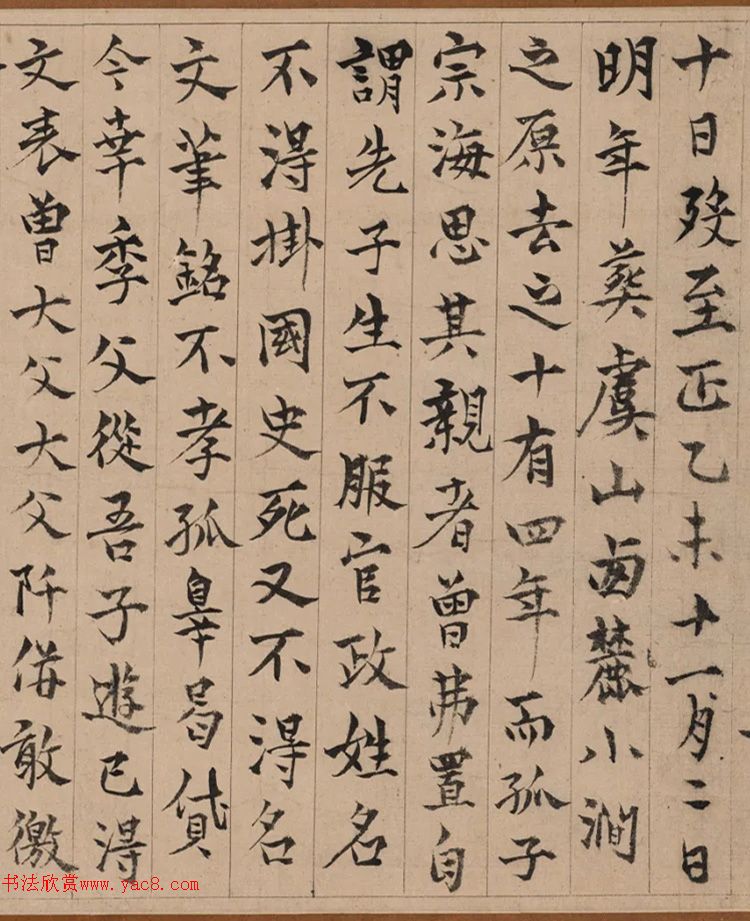 十日歿至正乙未十一月二日
明年葬虞山西麓小澗
之原去之十有四年而孤子
宗海思其親者曽弗置自
謂先子生不服官政姓名
不得掛國史死又不得名
文筆銘不孝孤辠曷貸
今幸季父從吾子遊已得
文表曽大父大父阡併敢徼
书法欣赏www.yac8.com